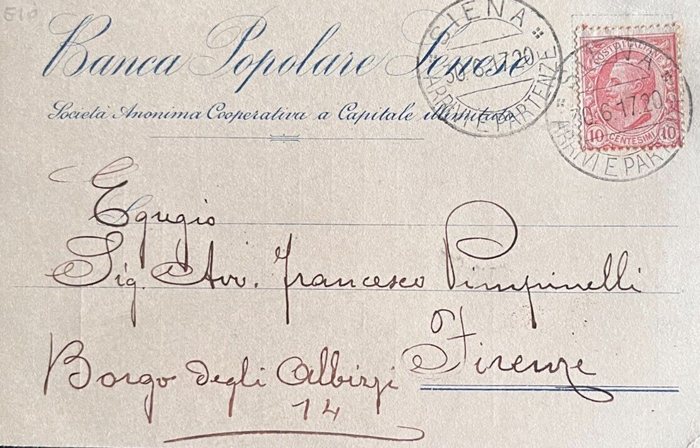 E10
Banca Popolare Senese
Società Anonima Cooperativa a Capitale illimitato
SIENA
30·6·17.20
ARRIVI E PARTENZE
POSTE ITALIANE
10 CENTESIMI 10
SIENA
30·6·17.20
ARRIVI E PAR
Egregio
Sig. Avv. Francesco Pimpinelli
Firenze
Borgo degli Albizzi
14